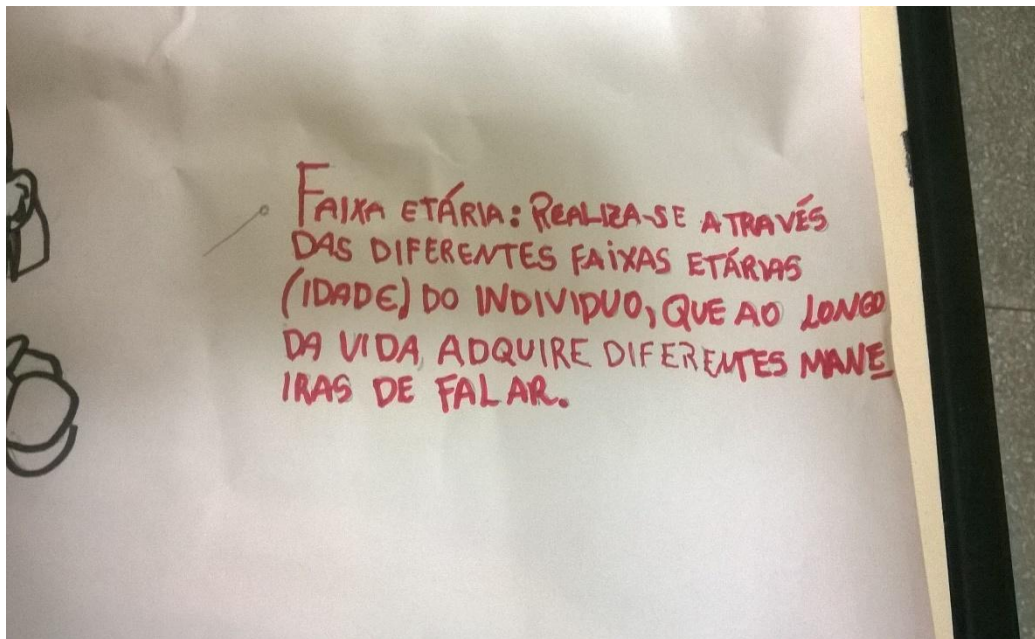 FAIXA ETÁRIA: REALIZA-SE ATRAVÉS
DAS DIFERENTES FAIXAS ETÁRIAS
(IDADE) DO INDIVIDUO, QUE AO LONGO
DA VIDA, ADQUIRE DIFERENTES MANE
IRAS DE FALAR.